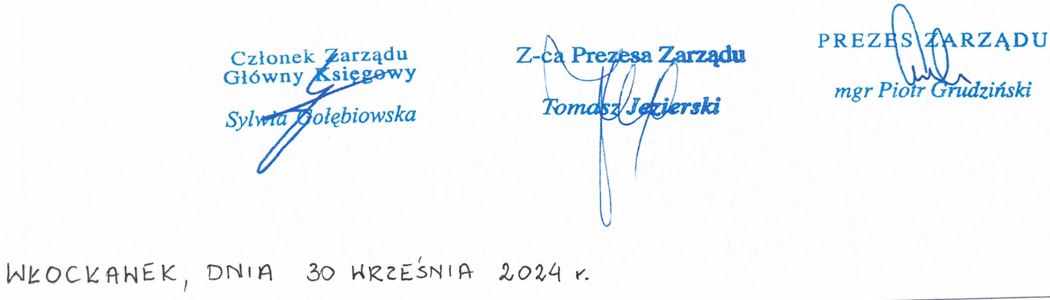 Członek Zarządu
Główny Księgowy
Sylwia Gołębiowska
Z-ca Prezesa Zarządu
Tomasz Jezierski
PREZES ZARZĄDU
mgr Piotr Grudziński
WŁOCŁAWEK, DNIA 30 WRZEŚNIA 2024 r.